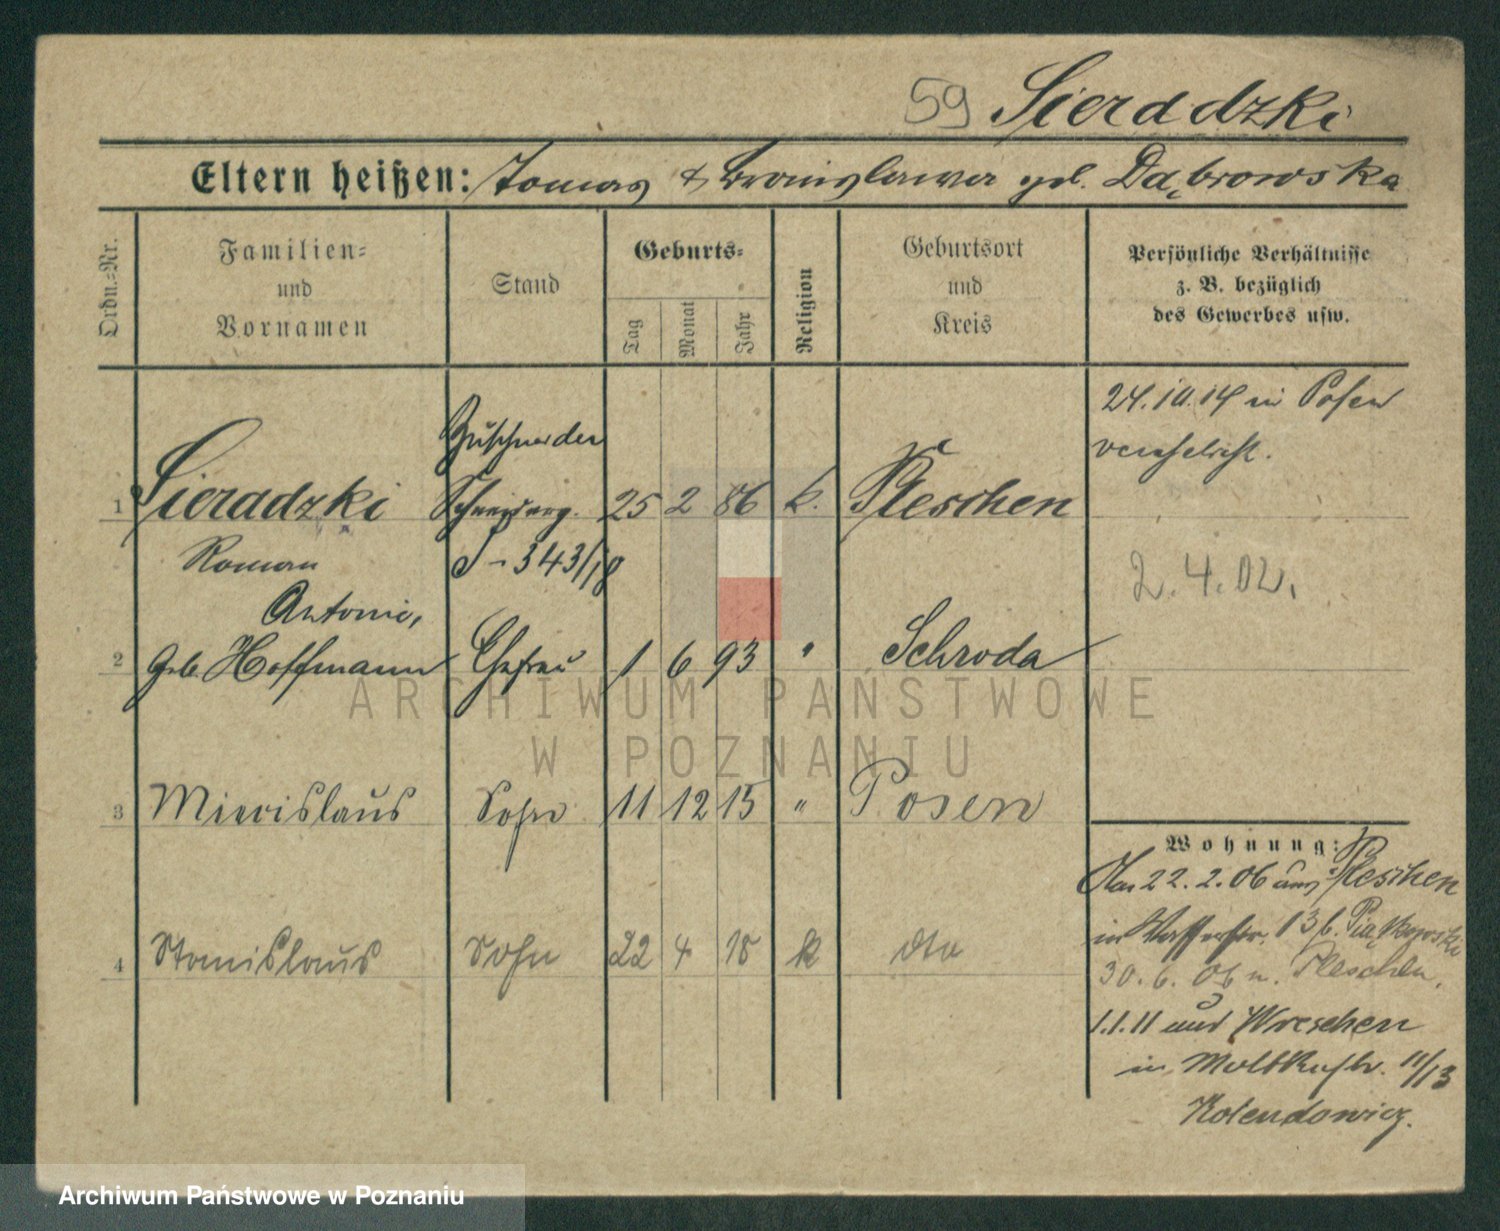 59 Sieradzki
Eltern heißen: Tomas & Bronislawa geb. Dąbrowska
Ordn.=Nr.
Familien=
und
Vornamen
Stand
Geburts=
Tag
Monat
Jahr
Religion
Geburtsort
und
Kreis
Persönliche Verhältnisse
z. B. bezüglich
des Gewerbes usw.
24.10.14 in Posen
verehelicht.
Zuschneider
1 Sieradzki
25 2 86 k. Pleschen
Roman
J - 343/18
2.4.02.
Antonie,
2 geb. Hoffmann Ehefrau 1 6 93 " Schroda
3 Miecislaus Sohn 11 12 15 " Posen
4 Stanislaus Sohn 22 4 18 k dto
Wohnung:
Am 22.2.06 aus Pleschen
in 13 b. Piątkowski
30.6.06 n. Pleschen.
1.1.11 aus Wreschen
in Moltkestr. 11/13
Kolendowicz.
ARCHIWUM PAŃSTWOWE
W POZNANIU
Archiwum Państwowe w Poznaniu